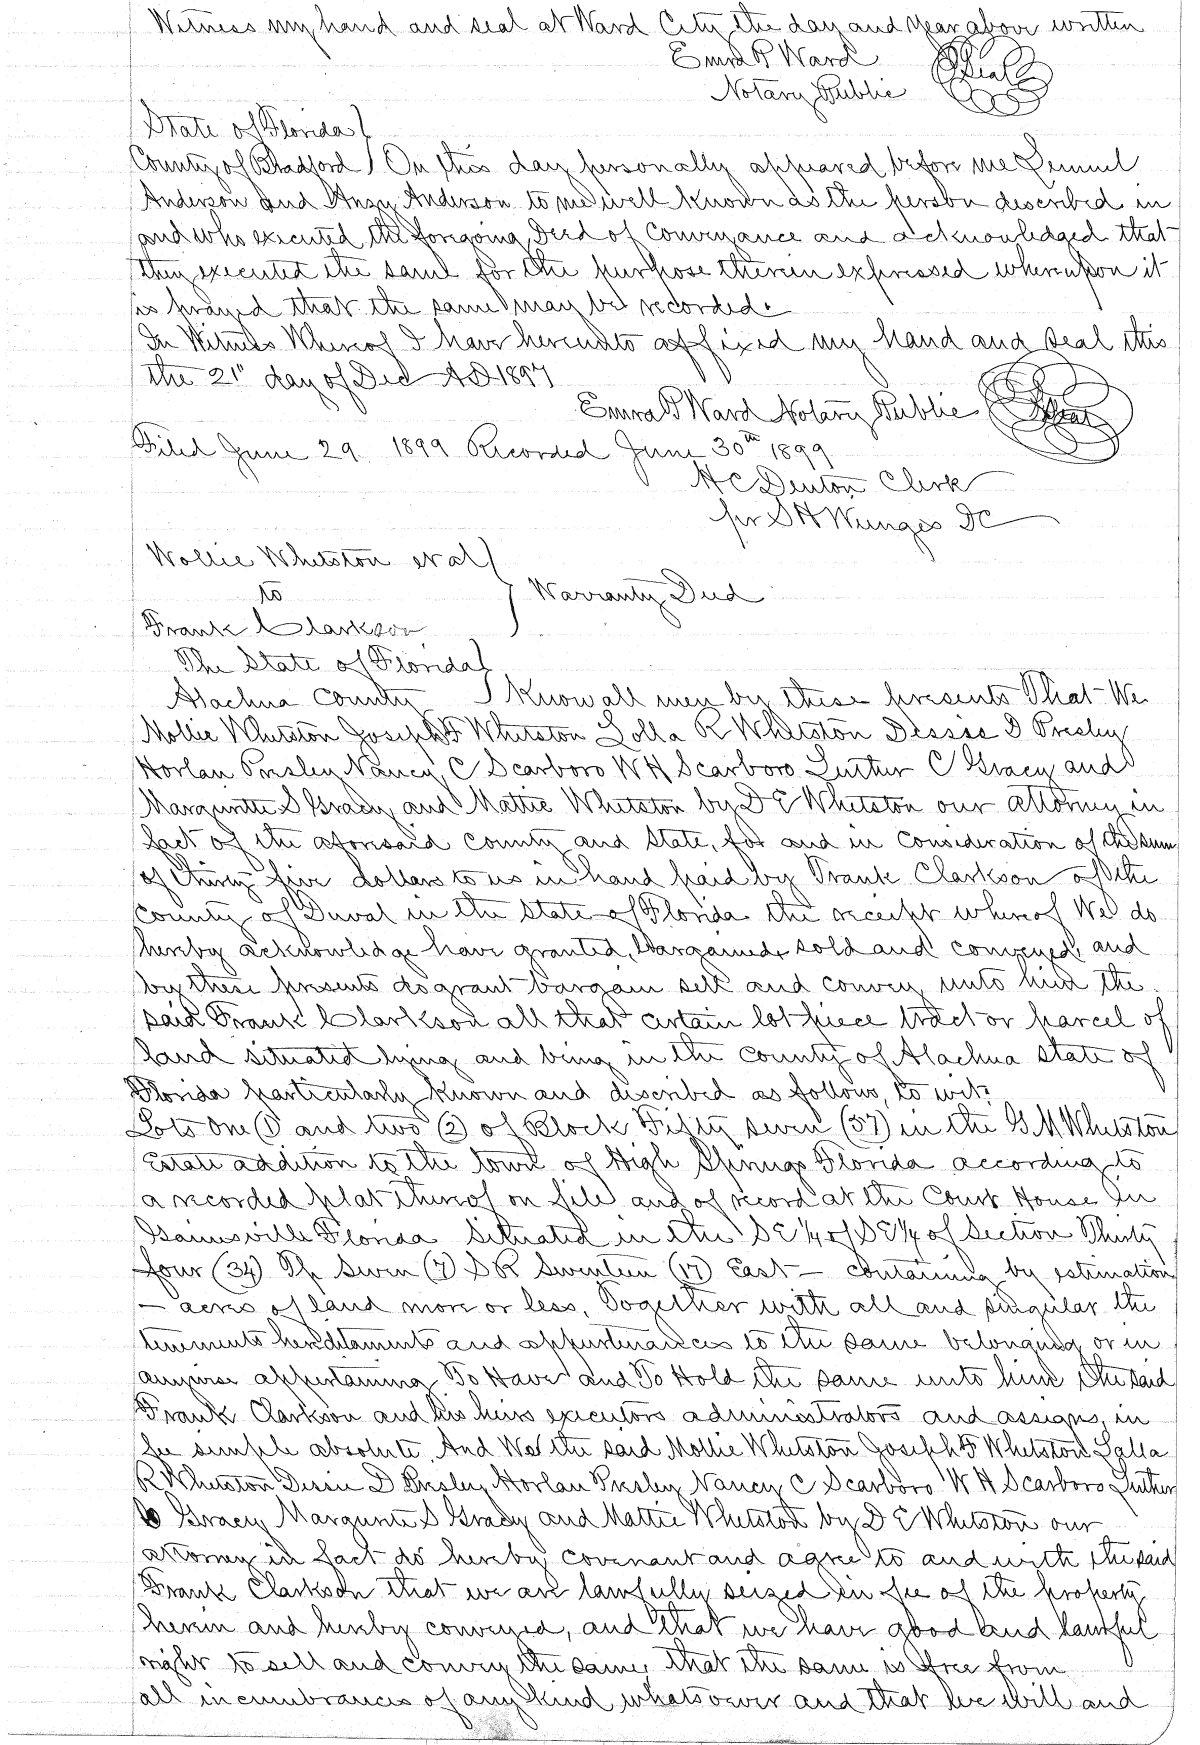 Witness my hand and seal at Ward City the day and year above written
Emra P Ward
Notary Public
Seal
State of Florida }
County of Bradford } On this day personally appeared before me Lemuel
Anderson and Anzy Anderson to me well known as the person described in
and who executed the foregoing Deed of Conveyance and acknowledged that
they executed the same for the purpose therein expressed whereupon it
is prayed that the same may be recorded.
In Witness Whereof I have hereunto affixed my hand and seal this
the 21" day of Dec AD 1897
Emra P Ward Notary Public Seal
Filed June 29 1899 Recorded June 30th 1899
H C Denton Clerk
per S H Wienges DC
Mollie Whetston et al }
to } Warranty Deed
Frank Clarkson
The State of Florida }
Alachua County } Know all men by these presents That We
Mollie Whetston Joseph F Whetston Lolla R Whetston Dessie D Presley
Horlan Presley Nancy C Scarboro W H Scarboro Luther C Gracy and
Margurite S Gracy and Mattie Whetston by D E Whetston our attorney in
fact of the aforesaid county and state, for and in consideration of the sum
of thirty five dollars to us in hand paid by Frank Clarkson of the
County of Duval in the State of Florida the receipt whereof We do
hereby acknowledge have granted, bargained, sold and conveyed, and
by these presents do grant bargain sell and convey unto him the
said Frank Clarkson all that certain lot piece tract or parcel of
land situated lying and being in the county of Alachua state of
Florida particularly known and described as follows, to wit:
Lots One (1) and two (2) of Block Fifty seven (57) in the G. M. Whetston
Estate addition to the town of High Springs Florida according to
a recorded plat thereof on file and of record at the Court House in
Gainesville Florida situated in the SE 1/4 of SE 1/4 of Section Thirty
four (34) Tp Seven (7) S R Seventeen (17) East — containing by estimation
— acres of land more or less, Together with all and singular the
tenements hereditaments and appurtenances to the same belonging or in
anywise appertaining To Have and To Hold the same unto him the said
Frank Clarkson and his heirs executors administrators and assigns, in
fee simple absolute. And We the said Mollie Whetston Joseph F Whetston Lalla
R Whetston Dessie D Presley Horlan Presley Nancy C Scarboro W H Scarboro Luther
C Gracy Margurite S Gracy and Mattie Whetston by D E Whetston our
attorney in fact do hereby covenant and agree to and with the said
Frank Clarkson that we are lawfully seized in fee of the property
herein and hereby conveyed, and that we have good and lawful
right to sell and convey the same, that the same is free from
all incumbrances of any kind whatsoever and that we will and